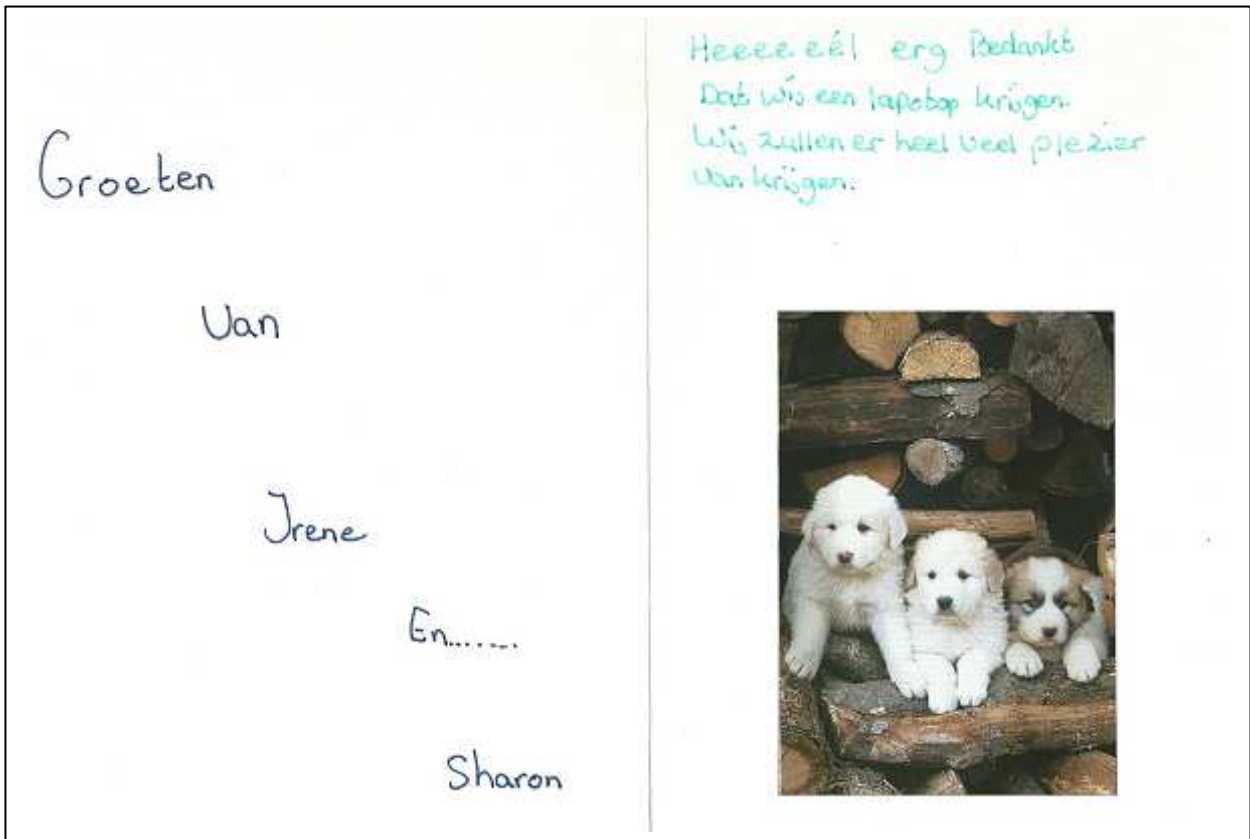 Groeten
Van
Irene
En.......
Sharon
Heeeeeél erg Bedankt
Dat wij een lapotop krijgen.
Wij zullen er heel veel plezier
Van krijgen.